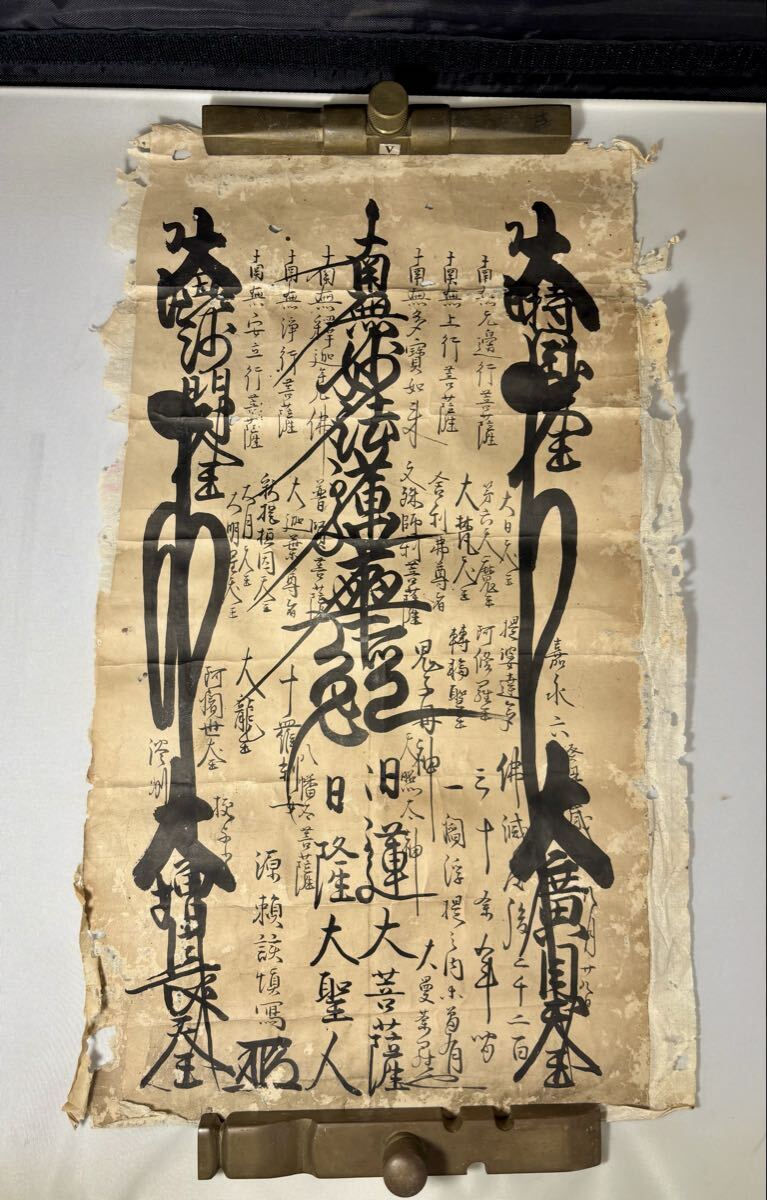 大持国天王
南無無邊行菩薩
南無上行菩薩
南無多寶如来
南無妙法蓮華經
南無釋迦牟尼佛
南無淨行菩薩
南無安立行菩薩
大毘沙門天王
大日天王
第六天魔王
大梵天王
舎利弗尊者
文殊師利菩薩
普賢菩薩
大迦葉尊者
釈提桓因天王
大月天王
大明星天王
嘉永六癸丑歳八月廿八日
提婆達多
阿修羅王
轉輪聖王
鬼子母神
十羅刹女
大龍王
阿闍世大王
大廣目天王
佛滅度後二千二百
三十余年
一閻浮提之内未曽有
大曼荼羅也
天照太神
八幡大菩薩
日蓮大菩薩
日隆大聖人
源頼該慎寫
大増長天王